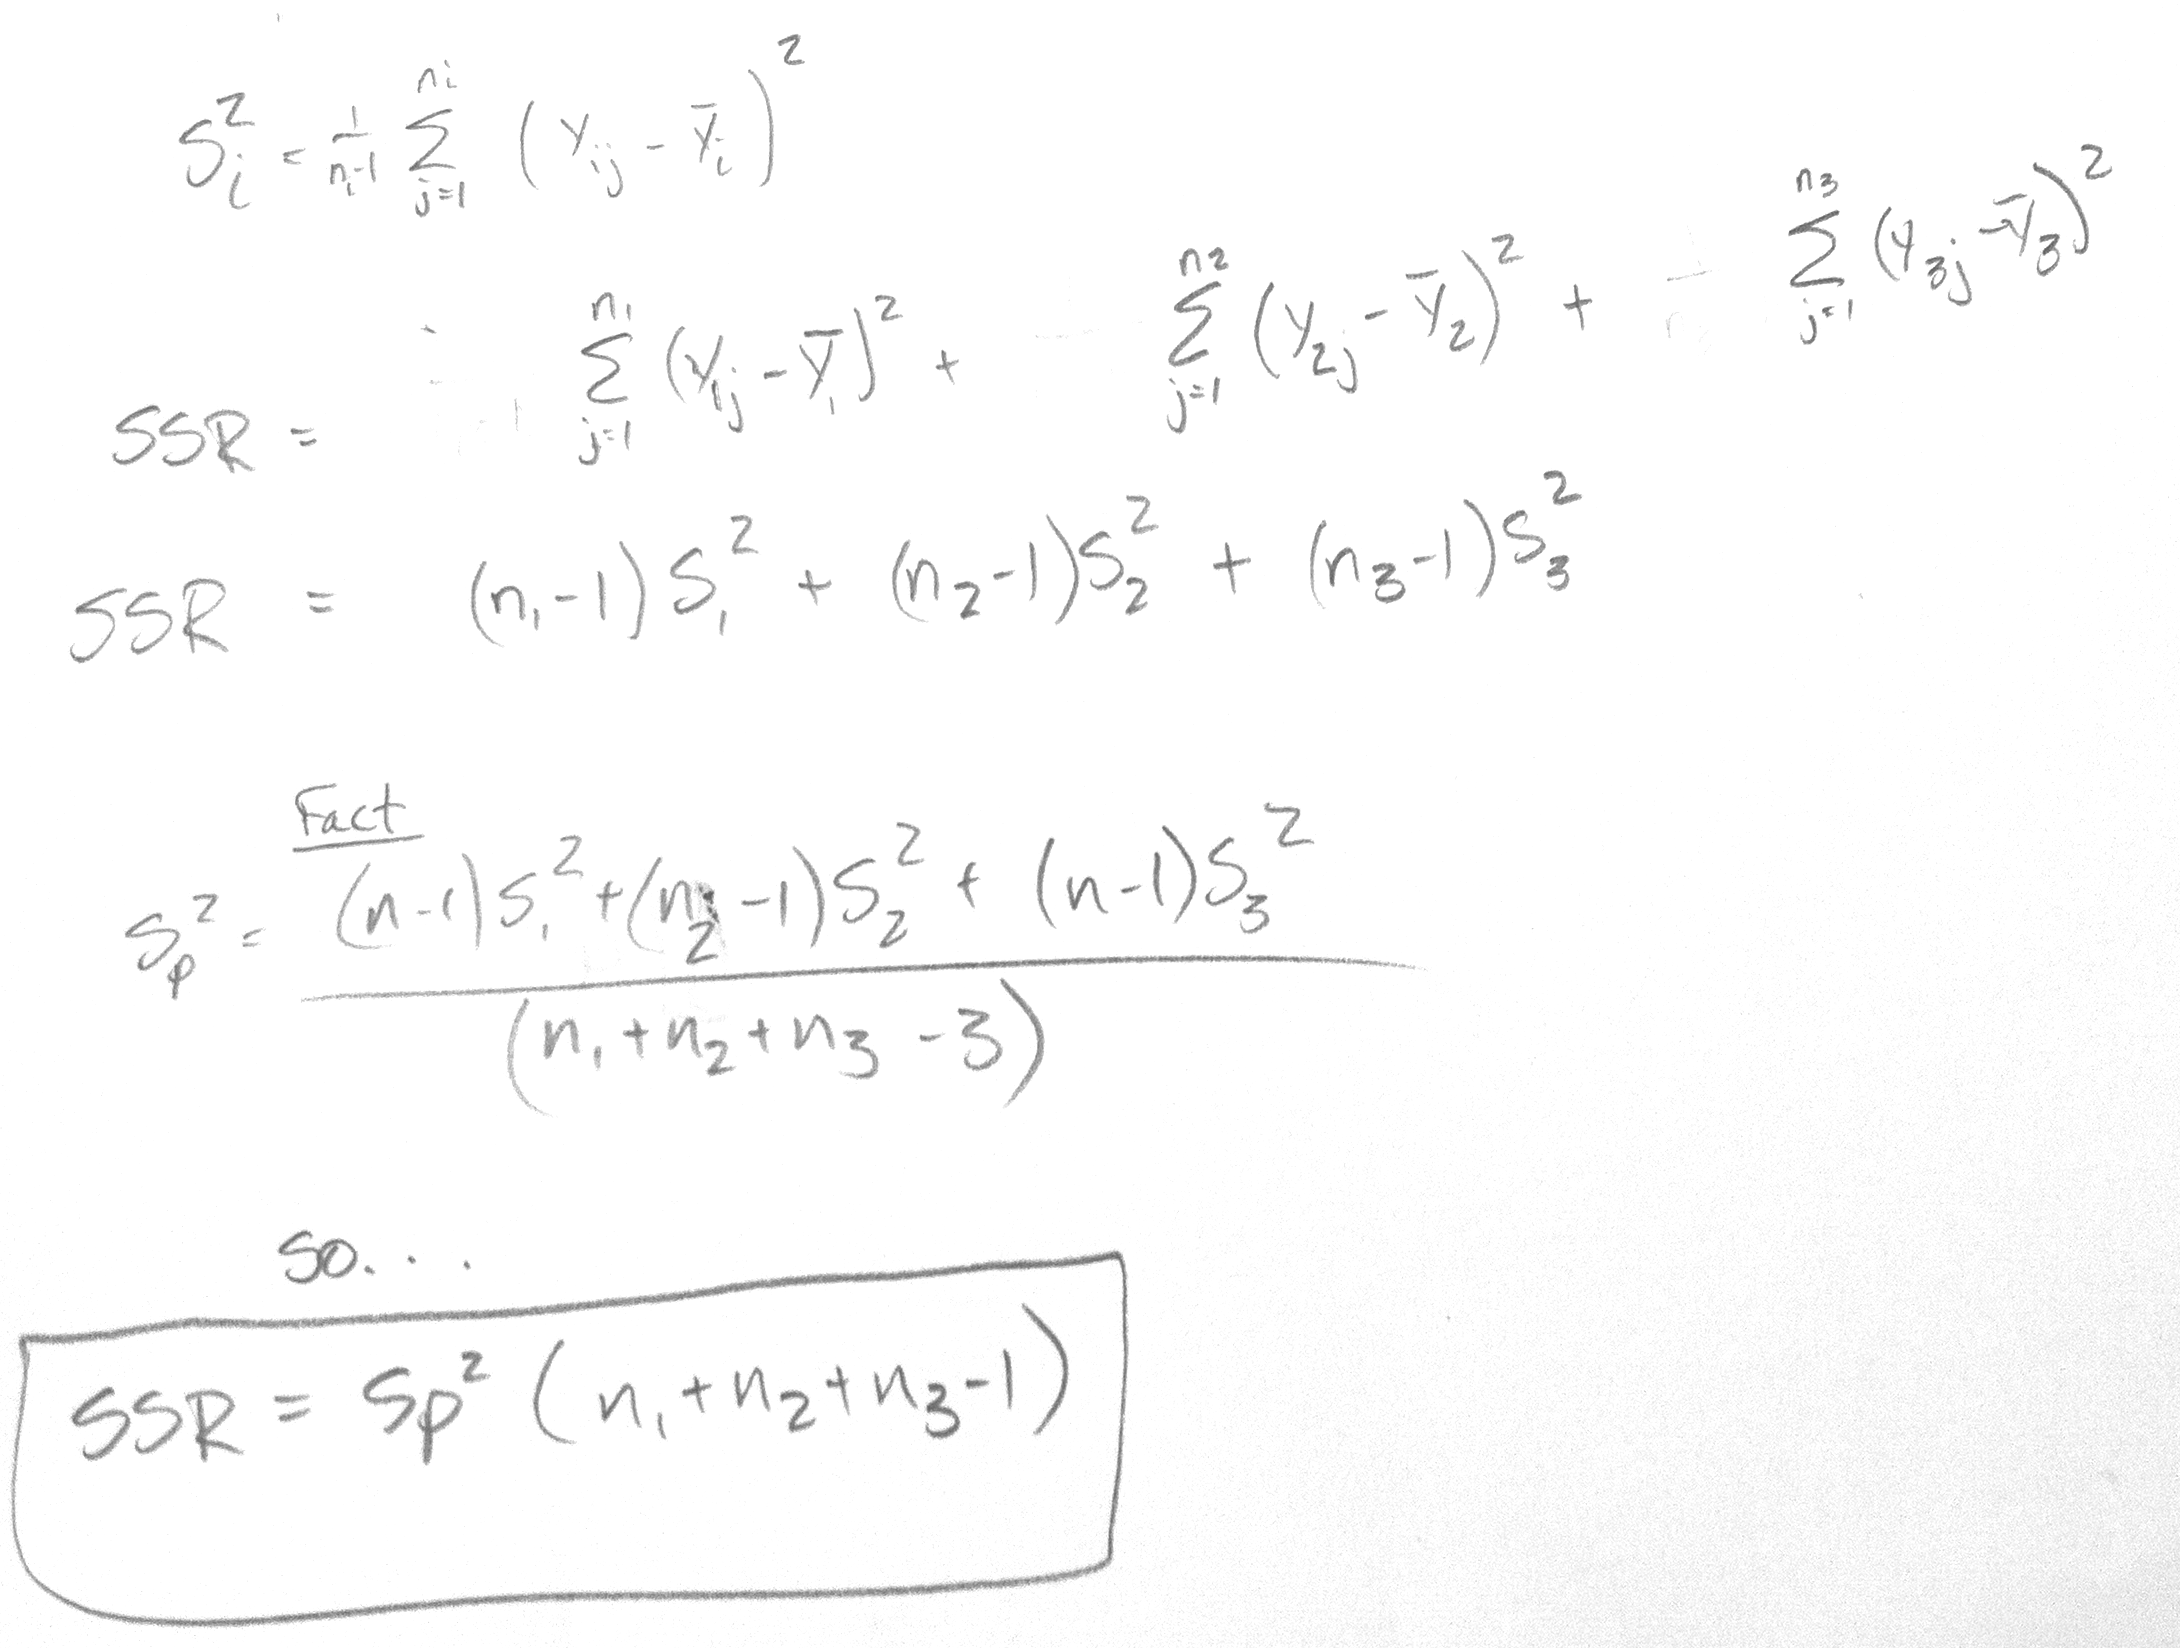 S_i^2 = \frac{1}{n_i-1} \sum_{j=1}^{n_i} (Y_{ij} - \bar{Y}_i)^2
SSR = \sum_{j=1}^{n_1} (Y_{1j} - \bar{Y}_1)^2 + \sum_{j=1}^{n_2} (Y_{2j} - \bar{Y}_2)^2 + \sum_{j=1}^{n_3} (Y_{3j} - \bar{Y}_3)^2
SSR = (n_1-1) S_1^2 + (n_2-1) S_2^2 + (n_3-1) S_3^2
Fact
S_p^2 = \frac{(n-1) S_1^2 + (n_2-1) S_2^2 + (n-1) S_3^2}{(n_1+n_2+n_3-3)}
so...
SSR = Sp^2 (n_1+n_2+n_3-1)